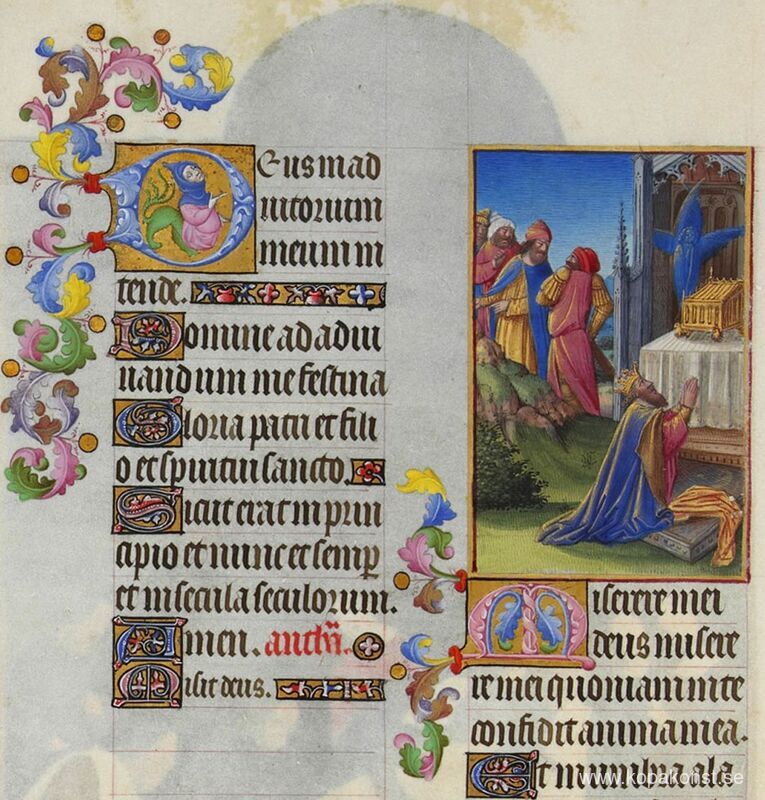 Deus in ad
iutorium
meum in
tende.
Domine ad adiu
uandum me festina
Gloria patri et fili
o et spiritui sancto.
Sicut erat in prin
cipio et nunc et semp
et in secula seculorum.
Amen. anthñ.
Misit deus.
Miserere mei
deus misere
re mei quoniam in te
confidit anima mea.
Et in umbra ala
www.kopakonst.se